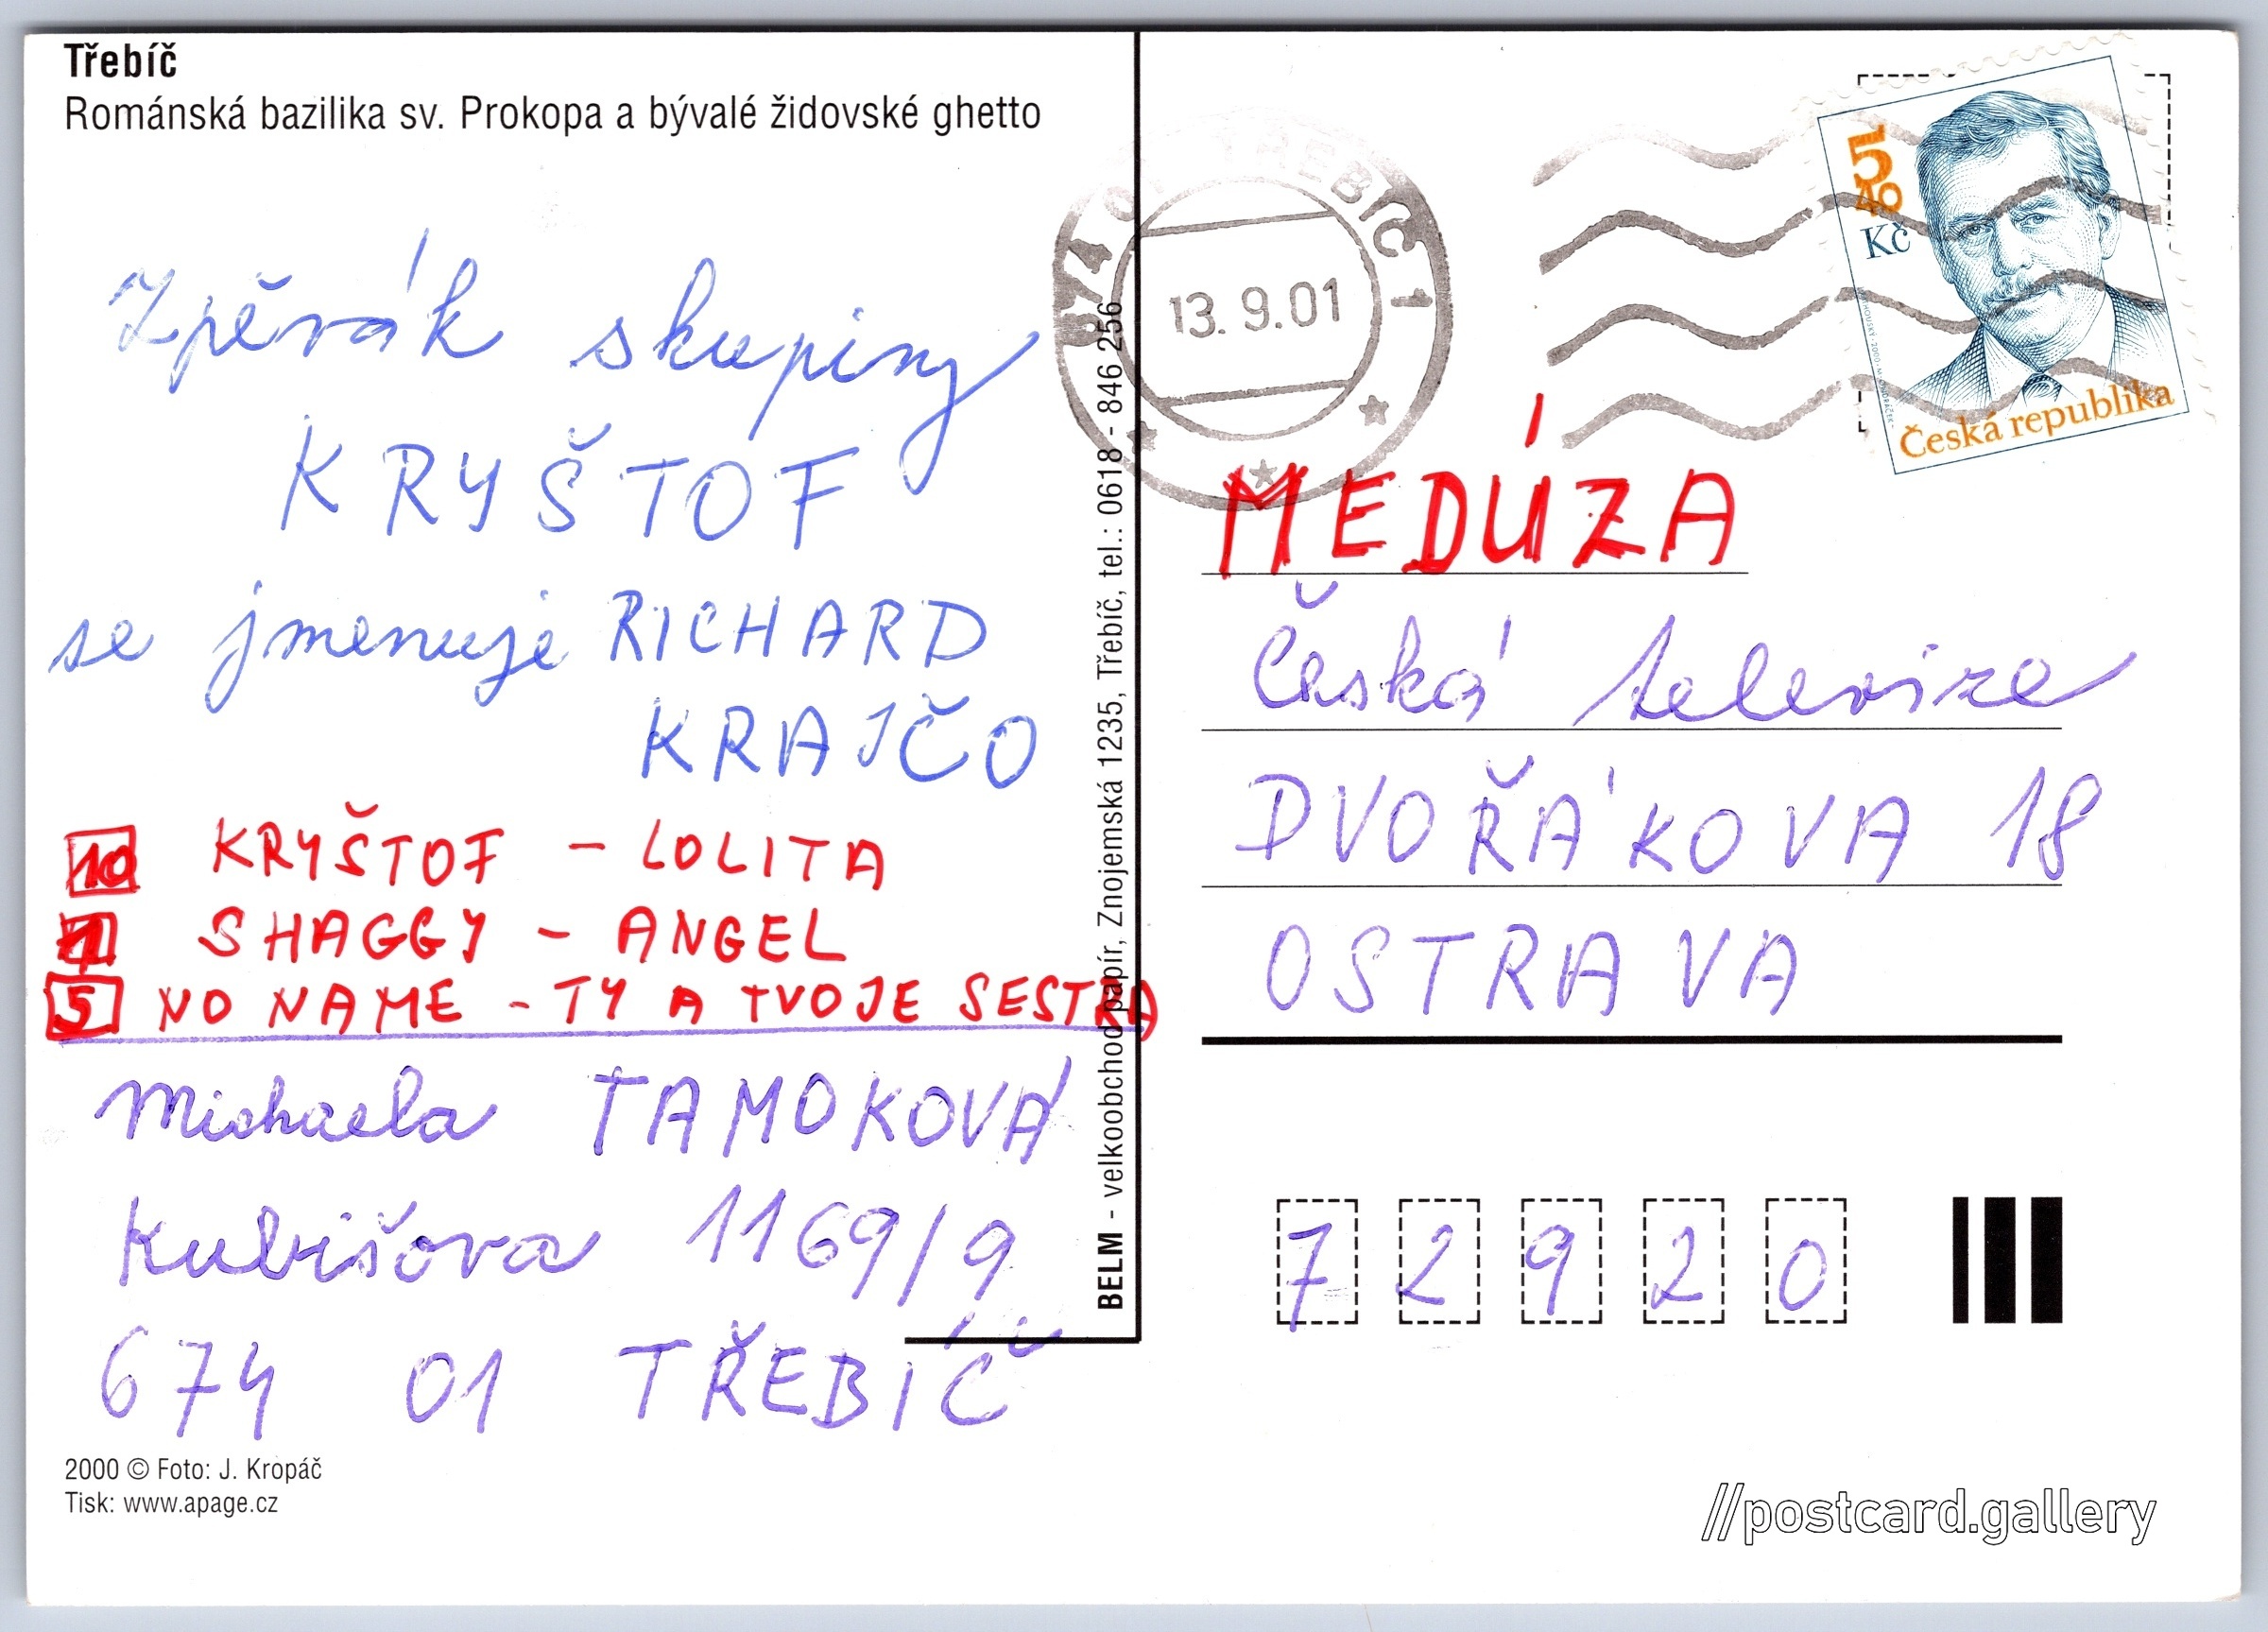 Třebíč
Románská bazilika sv. Prokopa a bývalé židovské ghetto
Zpěvák skupiny
KRYŠTOF
se jmenuje RICHARD
KRAJČO
10 KRYŠTOF - LOLITA
1 SHAGGY - ANGEL
5 NO NAME - TY A TVOJE SESTRA
Michaela TAMOKOVÁ
Kubišova 1169/9
674 01 TŘEBÍČ
2000 © Foto: J. Kropáč
Tisk: www.apage.cz
BELM - velkoobchod papír, Znojemská 1235, Třebíč, tel.: 0618 - 846 256
TŘEBÍČ 1
13. 9.01
5
40
Kč
Česká republika
MEDÚZA
Česká televize
DVOŘÁKOVA 18
OSTRAVA
7 2 9 2 0
//postcard.gallery